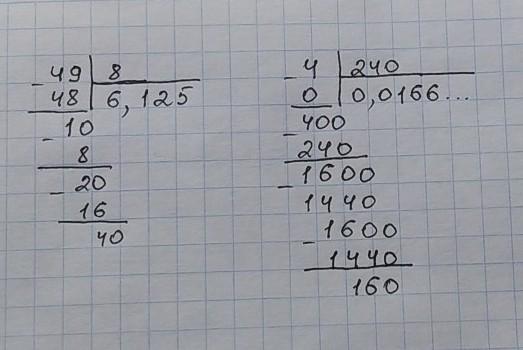 - 49 | 8
48 | 6,125
- 10
8
- 20
16
40
- 4 | 240
0 | 0,0166...
- 400
240
- 1600
1440
- 1600
1440
160